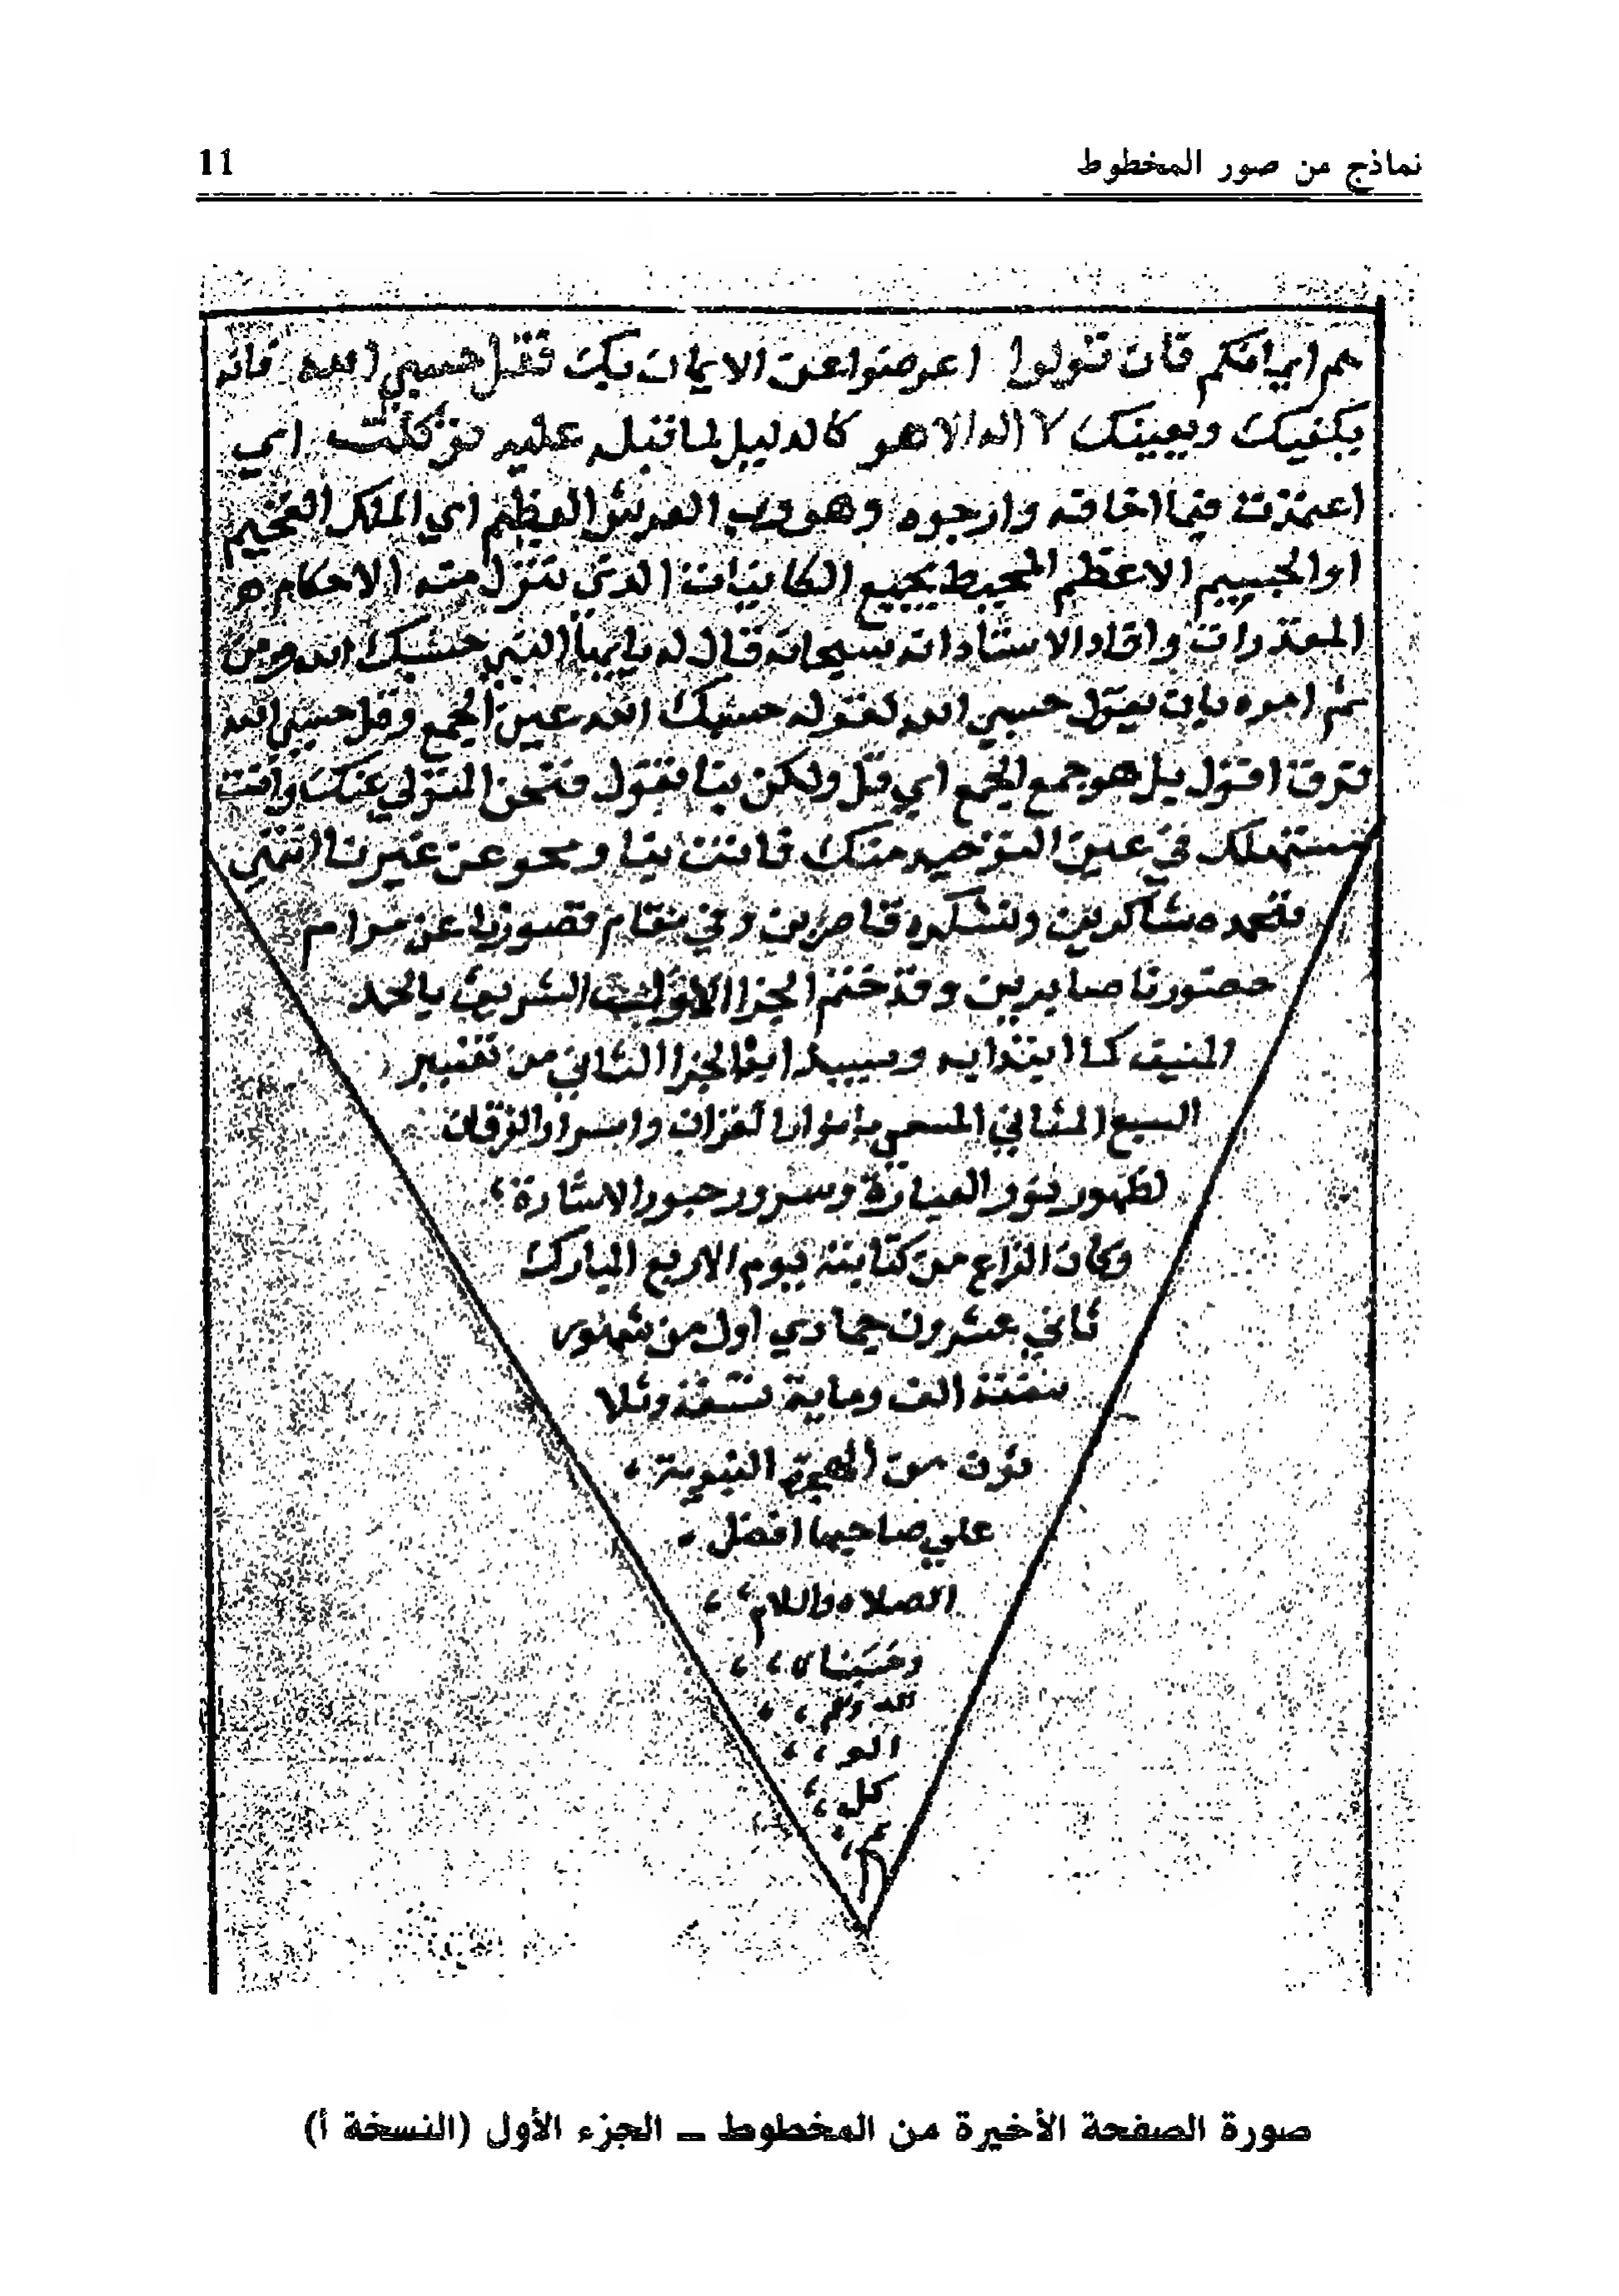 نماذج من صور المخطوط
11
فان تولوا اعرضوا عن الايمان بك فقل حسبي الله فانه
يكفيك ويعينك لا اله الا هو كالدليل لما قبله عليه توكلت اي
فما اخافه وارجوه وهو رب العرش العظيم اي الملك
او الجسيم الاعظم المحيط بجميع الكاينات الذي تنزل منه الاحكام
وافاد الاستاد انه سبحانه قال له يا يها النبي حسبك الله ومن
ثم امره بان يقول حسبي الله لقوله حسبك الله عين الجمع وقل حسبي الله
فرق اقول بل هو جمع الجمع اي قل ولكن بنا فنقول فنحن المتولي عنك وانت
مستهلك في عين التوحيد منك فانت بنا ومحو عن غيرنا انتهي
فنحمده شاكرين ونشكره وفي مقام قصورنا عن مرام
حضورنا صابرين وقد ختم الجزا الاول الشريف بالحمد
المنيف كما ابتدا به الجزا الثاني من تفسير
السبع المثاني المسمي بانوار القران واسرار الفرقان
لظهور نور العبارة وسرور حبور الاشارة
وكان الفراغ من كتابته يوم الاربع المبارك
ثاني عشرون جمادي اول من شهور
سنة الف وماية تسعة وثلا
ثون من الهجرة النبوية
علي صاحبها افضل
الصلاه والسلام
وحسبنا
الله ونعم
الو
كل
صورة الصفحة الأخيرة من المخطوط ــ الجزء الأول (النسخة أ)